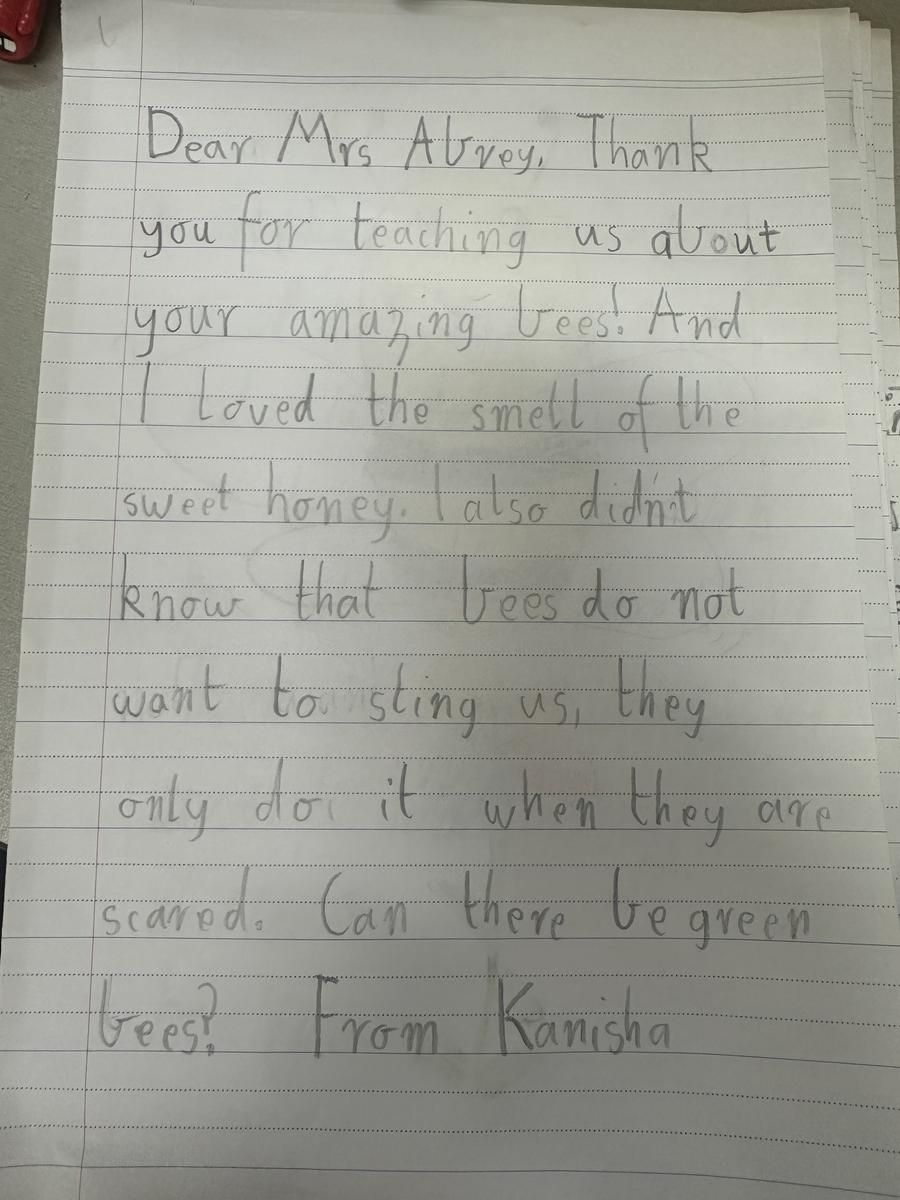 Dear Mrs Abrey, Thank
you for teaching us about
your amazing bees! And
I loved the smell of the
sweet honey. I also didn't
know that bees do not
want to sting us, they
only do it when they are
scared. Can there be green
bees? From Kanisha